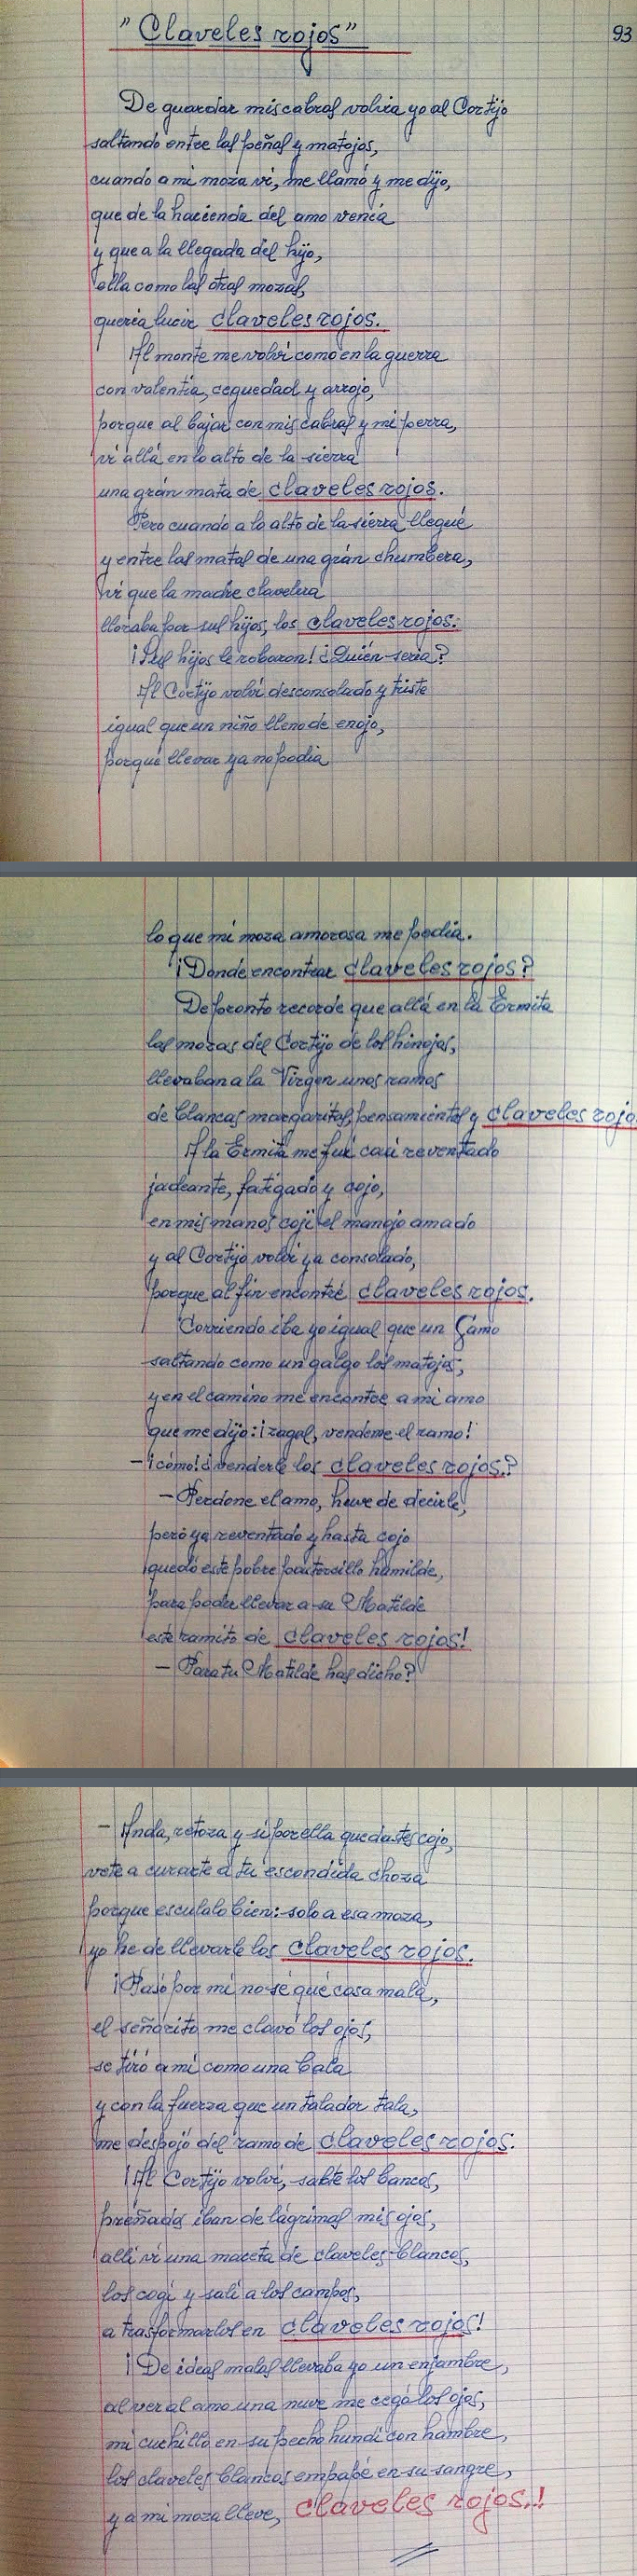 " Claveles rojos "
93
De guardar mis cabras volvia yo al Cortijo
saltando entre las peñas y matojos,
cuando a mi moza vi, me llamó y me dijo,
que de la hacienda del amo venia
y que a la llegada del hijo,
ella como las otras mozas,
queria lucir claveles rojos.
Al monte me volvi como en la guerra
con valentia, ceguedad y arrojo,
porque al bajar con mis cabras y mi perra,
vi allá en lo alto de la sierra
una grán mata de claveles rojos.
Pero cuando a lo alto de la sierra llegué
y entre las matas de una grán chumbera,
vi que la madre clavelera
lloraba por sus hijos, los claveles rojos.
¡Sus hijos le robaron! ¿Quién seria?
Al Cortijo volvi desconsolado y triste
igual que un niño lleno de enojo,
porqué llevar ya no podia
lo que mi moza amorosa me pedia.
¡Donde encontrar claveles rojos?
De pronto recorde que allá en la Ermita
las mozas del Cortijo de los hinojos,
llevaban a la Virgen unos ramos
de blancas margaritas, pensamientos y claveles rojo
A la Ermita me fui casi reventado
jadeante, fatigado y cojo,
en mis manos coji el manojo amado
y al Cortijo volvi ya consolado,
porque al fin encontré claveles rojos.
Corriendo iba yo igual que un Gamo
saltando como un galgo los matojos,
y en el camino me encontre a mi amo
que me dijo: ¡zagal, vendeme el ramo!
- ¡cómo! ¿venderle los claveles rojos?
- Perdone el amo, huve de decirle,
peró ya reventado y hasta cojo
quedó este pobre pastorsillo humilde,
para poder llevar a su Matilde
este ramito de claveles rojos!
- Para tu Matilde has dicho?
- Anda, retoza y si por ella quedastes cojo,
vete a curarte a tu escondida choza
porque esculalo bien: solo a esa moza,
yo he de llevarle los claveles rojos.
¡Pasó por mi no sé qué cosa mala,
el señorito me clavó los ojos,
se tiró a mi como una bala
y con la fuerza que un talador tala,
me despojó del ramo de claveles rojos.
¡Al Cortijo volvi, salte los bancos,
preñados iban de lágrimas mis ojos,
alli vi una maceta de claveles blancos,
los cogi y sali a los campos,
a trasformarlos en claveles rojos!
¡De ideas malas llevaba yo un enjambre,
al ver al amo una nuve me cegó los ojos,
mi cuchillo en su pecho hundi con hambre,
los claveles blancos empapé en su sangre,
y a mi moza lleve, claveles rojos..!